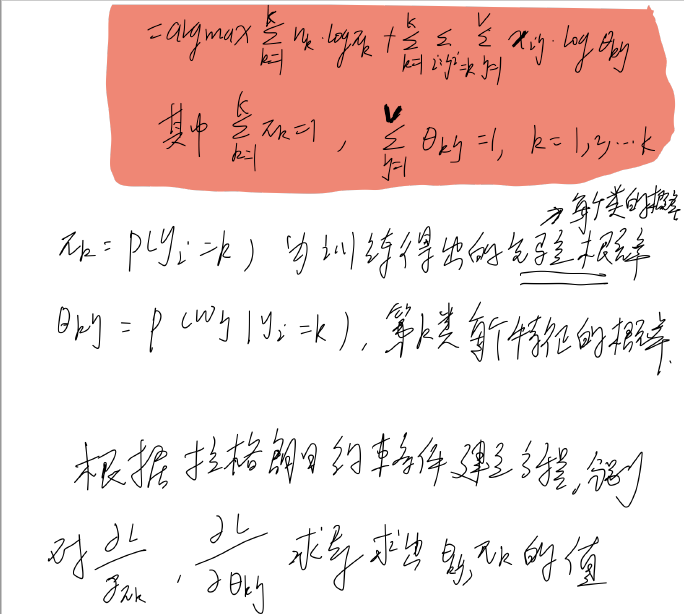 = argmax Σ_{k=1}^{K} n_k · log π_k + Σ_{k=1}^{K} Σ_{i:y_i=k} Σ_{y=1}^{V} x_{iy} · log θ_{ky}
其中 Σ_{k=1}^{K} π_k = 1 , Σ_{y=1}^{V} θ_{ky} = 1, k = 1,2,…k
→ 每个类的概率
π_k = p(y_i = k) 为训练得出的先验概率
θ_{ky} = p(w_y | y_i = k), 第k类每个特征的概率.
根据拉格朗日约束条件建立方程,分别
对 ∂L/∂π_k , ∂L/∂θ_{ky} 求导求出 θ_{ky}, π_k 的值